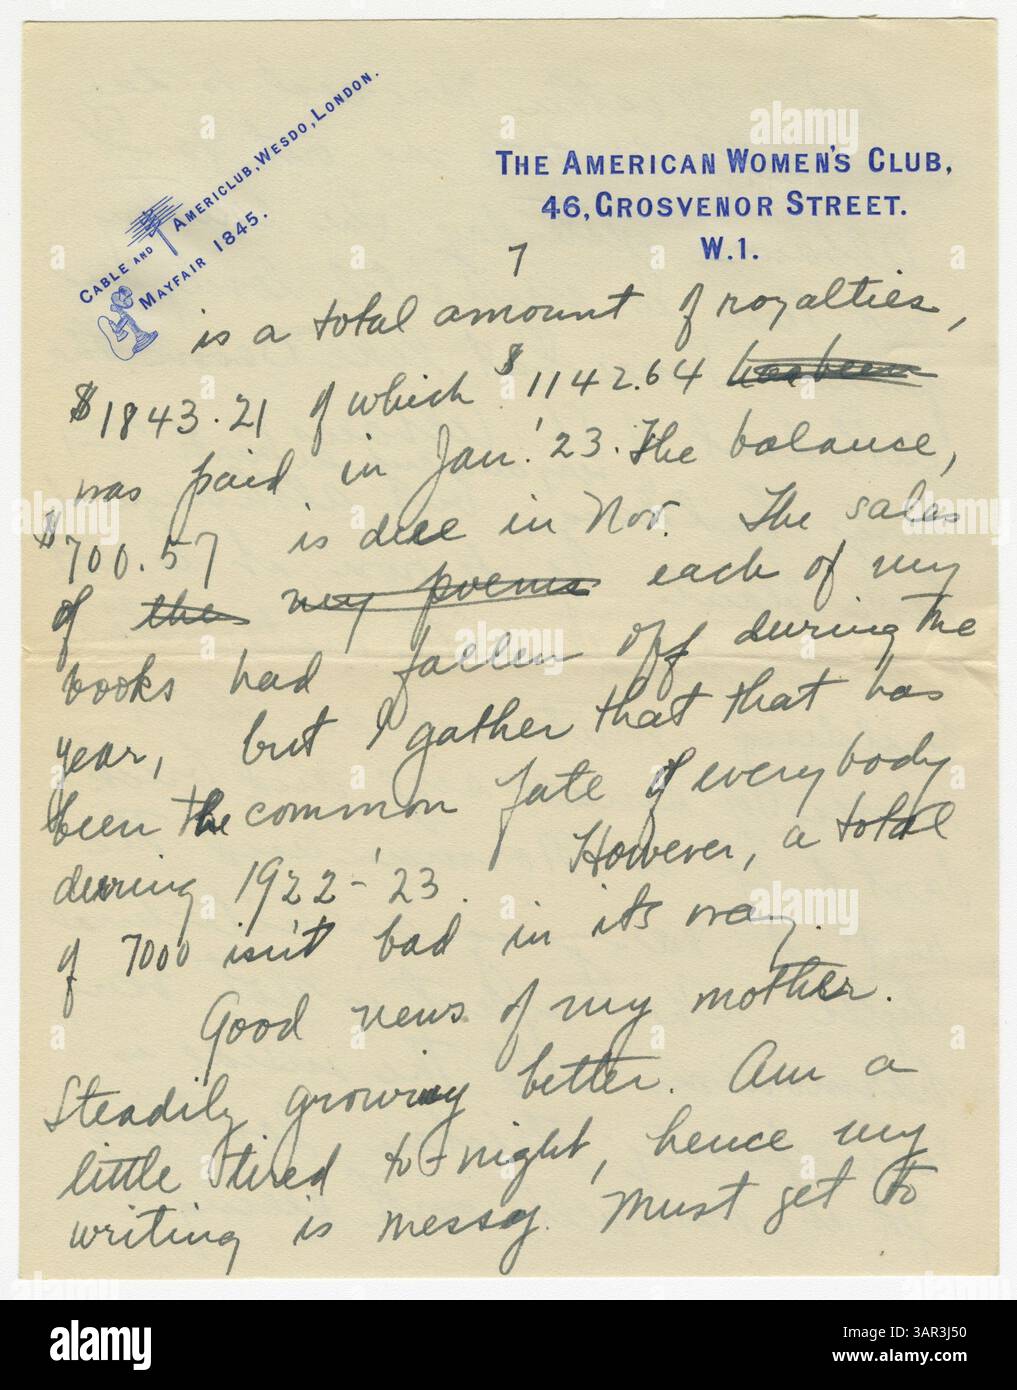 CABLE AND AMERICLUB, WESDO, LONDON.
MAYFAIR 1845.
THE AMERICAN WOMEN'S CLUB,
46, GROSVENOR STREET.
W.1.
7
is a total amount of royalties,
$1843.21 of which $1142.64 has been
was paid in Jan. '23. The balance,
$700.57 is due in Nov. The sales
of the my poems each of my
books had fallen off during the
year, but I gather that that has
been the common fate of everybody
during 1922-'23. However, a total
of 7000 isn't bad in its way.
Good news of my mother.
Steadily growing better. Am a
little tired to-night, hence my
writing is messy. Must get to
alamy
Image ID: 3AR3J50
www.alamy.com